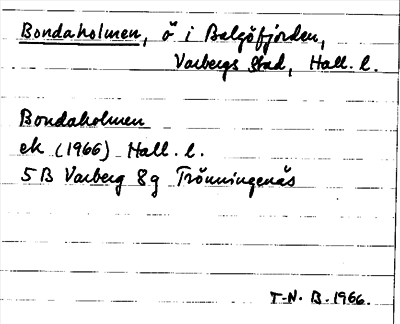 Bondaholmen, ö i Balgöfjorden,
Varbergs stad, Hall. l.
Bondaholmen
ek (1966) Hall. l.
5B Varberg 8g Trönningenäs
T-N. B. 1966.